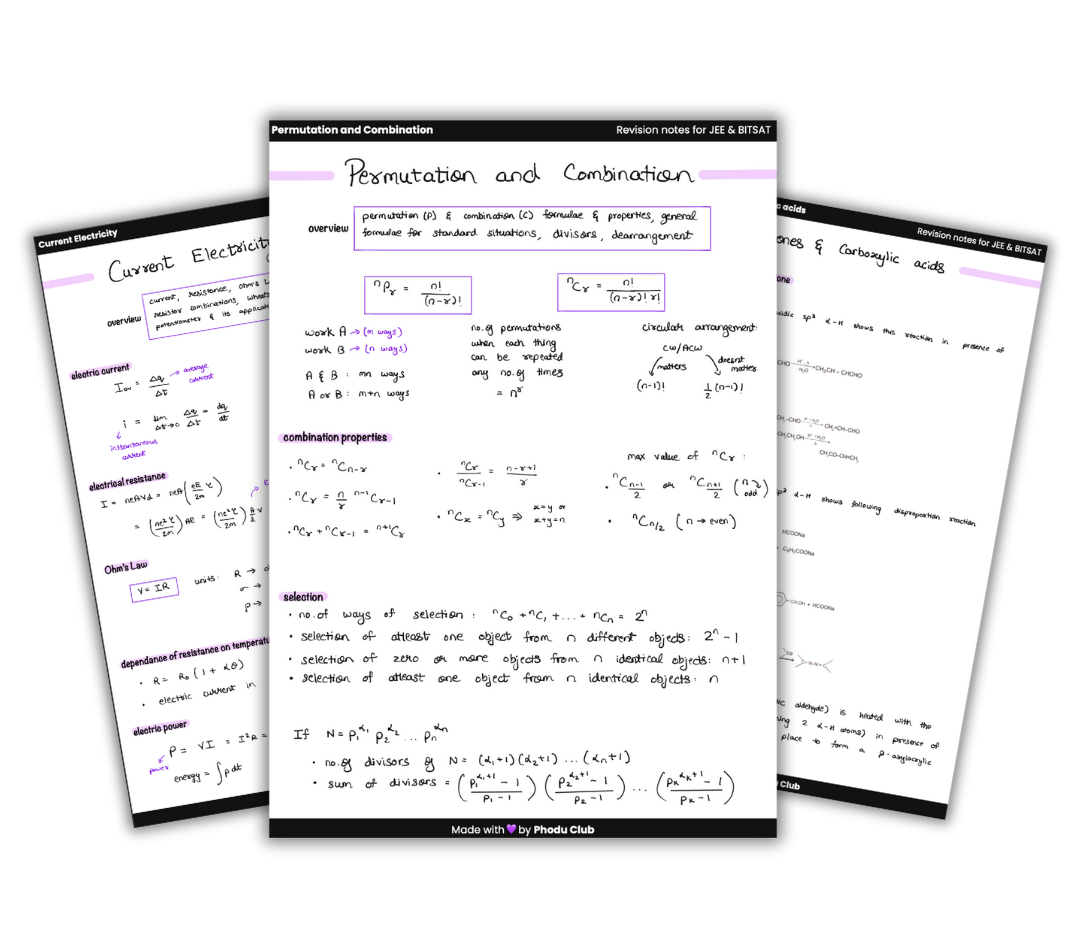 Current Electricity
Current Electricit
overview
current, resistance, ohm's L
resistor combinations, wheats
potensiometer & its applicat
electric current
Iav = Δq/Δt → average current
i = lim Δt→0 Δq/Δt = dq/dt
instantaneous current
electrical resistance
I = neAVd = neA(eE/2m τ)
= (ne²τ/2m) AE = (ne²τ/2m) A/l V
Ohm's Law
V = IR
units: R →
σ →
ρ →
dependance of resistance on temperatu
• R = R₀ (1 + αθ)
• electric current in
electric power
P = VI = I²R =
power
energy = ∫p dt
Permutation and Combination
Revision notes for JEE & BITSAT
Permutation and Combination
overview
permutation (P) & combination (C) formulae & properties, general
formulae for standard situations, divisors, dearrangement
ⁿPr = n!/(n-r)!
ⁿCr = n!/(n-r)! r!
work A → (m ways)
work B → (n ways)
A & B : mn ways
A or B : m+n ways
no. of permutations
when each thing
can be repeated
any no. of times
= nʳ
circular arrangement:
CW/ACW
matters
doesnt matters
(n-1)!
1/2 (n-1)!
combination properties
• ⁿCr = ⁿCn-r
• ⁿCr = n/r ⁿ⁻¹Cr-1
• ⁿCr + ⁿCr-1 = ⁿ⁺¹Cr
• ⁿCr/ⁿCr-1 = n-r+1/r
• ⁿCx = ⁿCy ⇒ x=y or x+y=n
max value of ⁿCr :
• ⁿCn-1/2 or ⁿCn+1/2 (n → odd)
• ⁿCn/2 (n → even)
selection
• no. of ways of selection : ⁿC₀ + ⁿC₁ + ... + ⁿCn = 2ⁿ
• selection of atleast one object from n different objects: 2ⁿ - 1
• selection of zero or more objects from n identical objects: n+1
• selection of atleast one object from n identical objects: n
If N = p₁^α₁ p₂^α₂ ... pn^αn
• no. of divisors of N = (α₁+1)(α₂+1) ... (αn+1)
• sum of divisors = (p₁^(α₁+1) - 1 / p₁ - 1) (p₂^(α₂+1) - 1 / p₂ - 1) ... (pk^(αk+1) - 1 / pk - 1)
Made with 💜 by Phodu Club
c acids
Revision notes for JEE & BITSAT
ones & Carboxylic acids
one
cidic sp³ α-H shows this reaction in presence of
sp³ α-H shows following disproportion reaction
HCOONa
+ C₆H₅COONa
CH₂OH + HCOONa
ic aldehyde) is heated with the
ing 2 α-H atoms) in presence of
place to form a β-arylacrylic
u Club